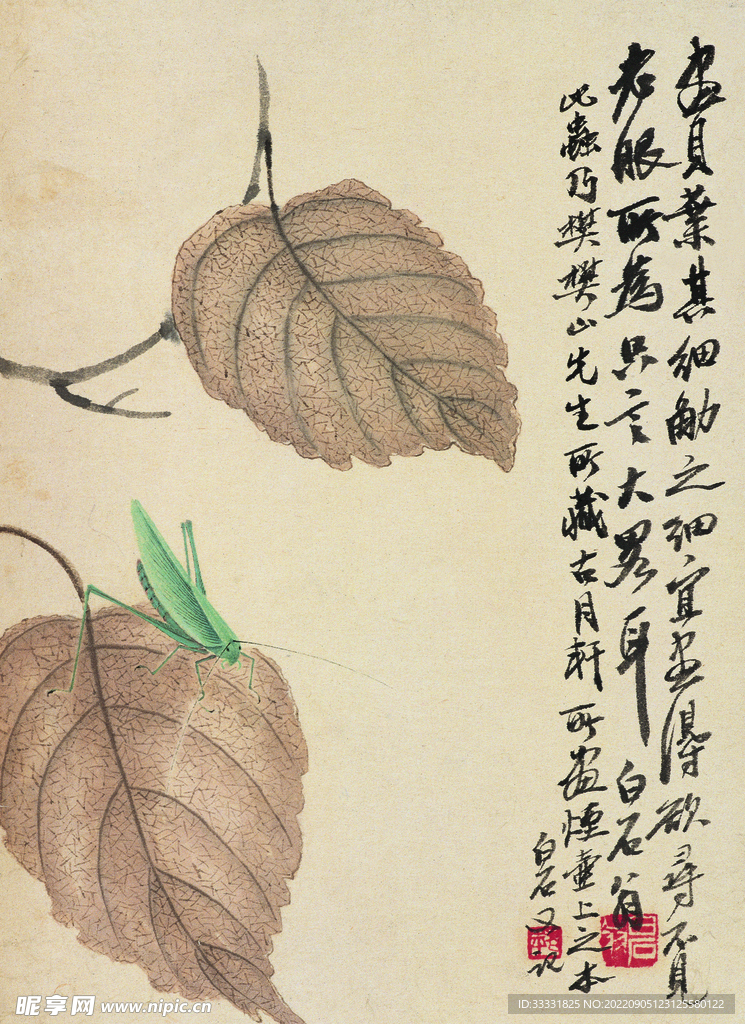 画貝葉其細觔之细宜画得欲尋不見
老眼所為只言大畧耳 白石翁
此蟲乃樊樊山先生所藏古月軒所畫煙壺上之本
白石又記
昵享网 www.nipic.cn
ID:33331825 NO:20220905123125580122